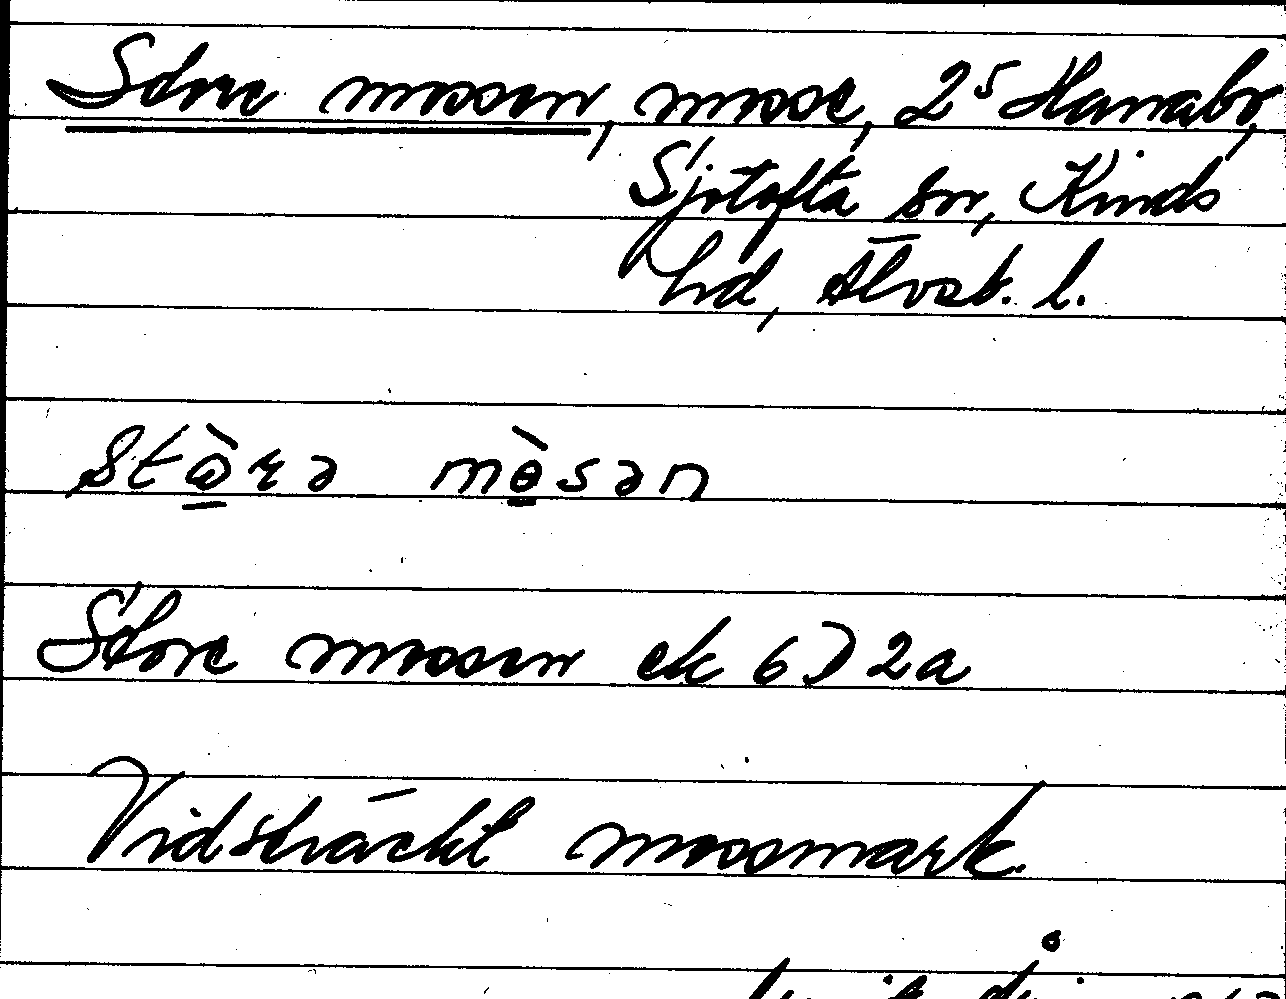 Store mossen, mosse, 2⁵ Hanabo,
Sjötofta sn, Kinds
hd, Älvsb. l.
stὼ̱rə mɵ̱̀sən
Store mossen ek 6D2a
Vidsträckt mossmark.